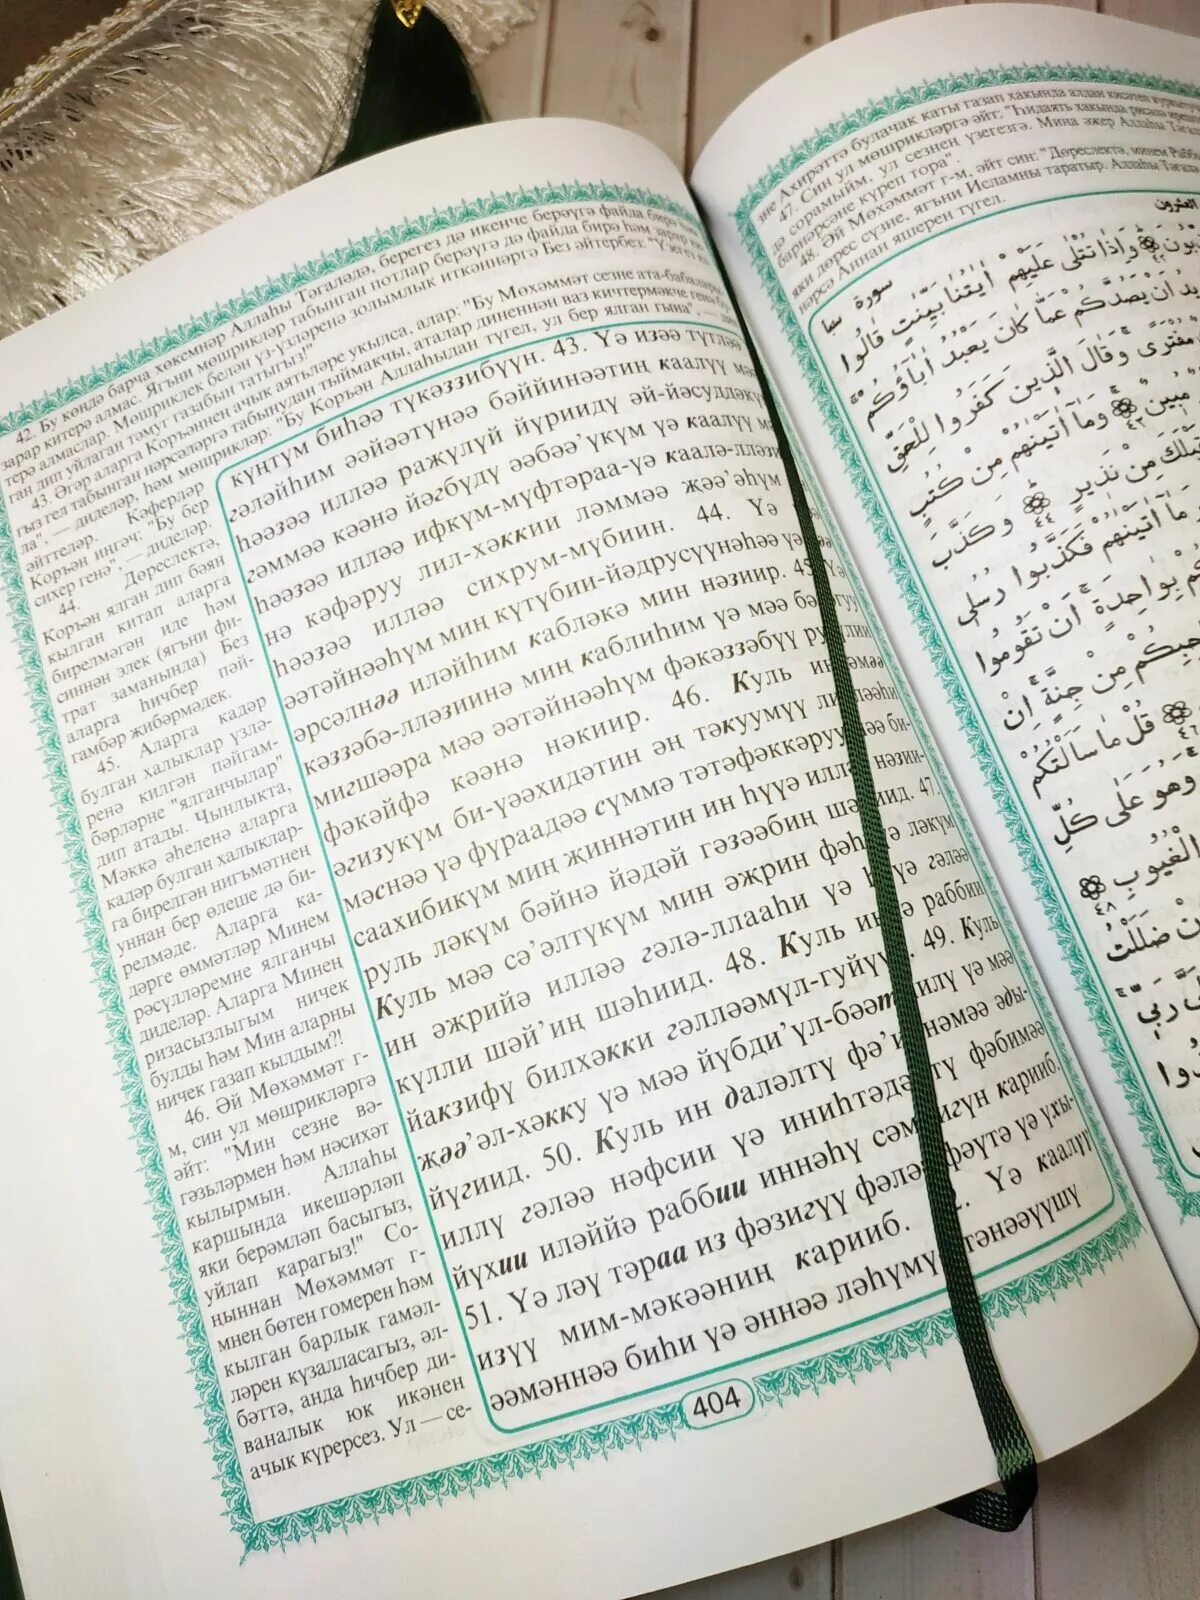 42. Бу көндә барча хәкемнәр Аллаһы Тәгаләдә, берегез дә икенче берәүгә файда бирә һәм
зарар китерә алмас. Ягъни мөшрикләр табынган потлар берәүгә дә файда бирә һәм зарар ки-
терә алмаслар. Мөшриклек белән үз-үзләренә золымлык иткәйннәргә Без әйтербез: "Үзегез ял-
ган дип уйлаган тәмуг газабын татыгыз!"
43. Әгәр аларга Коръәннең ачык аятьләре укылса, алар: "Бу Мөхәммәт сезне ата-бабалары-
гыз гел табынган нәрсәләргә табынудан тыймакчы, аталар диненнән ваз кичтермәкче генә бу-
ла", — диделәр, һәм мөшрикләр: "Бу Коръән Аллаһыдан түгел, ул бер ялган гына", —
әйттеләр. Кәферләр
Коръән ингәч: "Бу бер
сихер генә", — диделәр.
44. Дөреслектә,
Коръән ялган дип бәян
кылган китап аларга
бирелмәгән иде һәм
синнән элек (ягъни фи-
трат заманында) Без
аларга һичбер пәй-
гамбәр җибәрмәдек.
45. Аларга кадәр
булган халыклар үзлә-
ренә килгән пәйгам-
бәрләрне "ялганчылар"
дип атады. Чынлыкта,
Мәккә әһеленә аларга
кадәр булган халыклар-
га бирелгән нигъмәтнең
уннан бер өлеше дә би-
релмәде. Аларга ка-
дәрге өммәтләр Минем
рәсүлләремне ялганчы
диделәр. Аларга Минең
ризасызлыгым ничек
булды һәм Мин аларны
ничек газап кылдым?!
46. Әй Мөхәммәт г-
м, син ул мөшрикләргә
әйт: "Мин сезне вә-
гәзьләрмен һәм нәсихәт
кылырмын. Аллаһы
каршында икешәрләп
яки берәмләп басыгыз,
уйлап карагыз!" Со-
ңыннан Мөхәммәт г-
мнең бөтен гомерен һәм
кылган барлык гамәл-
ләрен күзалласагыз, әл-
бәттә, анда һичбер ди-
ваналык юк икәнен
ачык күрерсез. Ул — се-
күнтүм биһәә түкәззибүүн. 43. Үә изәә түтләә
гәләйһим әәйәәтүнәә бәййинәәтиң каалүү мәә
һәәзәә илләә раҗүлүй йүрииду әй-йәсуддәкүм
гәммәә кәәнә йәгбүдү әәбәә'үкүм үә каалүү мәә
һәәзәә илләә ифкүм-мүфтәраа-үә каалә-лләзии
нә кәфәруу лил-хәккии ләммәә җәә'әһүм
һәәзәә илләә сихрум-мүбиин. 44. Үә
әәтәйнәәһүм миң күтүбии-йәдрусүүнәһәә үә
әрсәлнәә иләйһим кабләкә мин нәзиир. 45. Үә
кәззәбә-лләзиинә миң каблиһим үә мәә бәләгуу
мигшәәра мәә әәтәйнәәһүм фәкәззәбүү русулии
фәкәйфә кәәнә нәкиир. 46. Куль иннәмәә
әгизукүм би-үәәхидәтин әң тәкуумүү лилләәһи
мәснәә үә фүраадәә сүммә тәтәфәккәруу мәә би-
саахибикүм миң җиннәтин ин һүүә илләә нәзии-
руль ләкүм бәйнә йәдәй гәзәәбиң шәдиид. 47.
Куль мәә сә'әлтүкүм мин әҗрин фәһүә ләкүм
ин әҗрийә илләә гәлә-ллааһи үә һүүә гәләә
күлли шәй'иң шәһиид. 48. Куль иннә раббии
йакзифү билхәкки гәлләәмүл-гуйүүб. 49. Куль
җәә'әл-хәкку үә мәә йүбди'үл-бәәтыйлү үә мәә
йүгиид. 50. Куль ин даләлтү фә'иннәмәә әды-
иллү гәләә нәфсии үә иниһтәдәйтү фәбимәә
йүхии иләййә раббии иннәһү сәмиигүн карииб.
51. Үә ләү тәраа из фәзигүү фәләә фәүтә үә үхы-
изүү мим-мәкәәниң карииб. Үә каалүү
әәмәннәә биһи үә әннәә ләһүмү тәнәәүүшү
404
зне Ахирәттә булачак каты газап хакында алдан кисәтеп
47. Син ул мөшрикләргә әйт: "Һидаять хакында рисалә
дә сорамыйм, ул сезнең үзегезгә. Миңа әҗер Аллаһы Тәгалә
барнәрсәне күреп тора".
48. Әй Мөхәммәт г-м, әйт син: "Дөреслектә, минем Рабб
яки дөрес сүзне, ягъни Исламны таратыр. Аллаһы Тәгалә
нәрсә Аннан яшерен түгел.
سورة سبأ
وَإِذَا تُتْلَى عَلَيْهِمْ آيَاتُنَا بَيِّنَاتٍ قَالُوا
يُرِيدُ أَنْ يَصُدَّكُمْ عَمَّا كَانَ يَعْبُدُ آبَاؤُكُمْ
مُفْتَرًى وَقَالَ الَّذِينَ كَفَرُوا لِلْحَقِّ
مُبِينٌ ٤٣ وَمَا آتَيْنَاهُمْ مِنْ كُتُبٍ
قَبْلَكَ مِنْ نَذِيرٍ ٤٤ وَكَذَّبَ
مَا آتَيْنَاهُمْ فَكَذَّبُوا رُسُلِي
بِوَاحِدَةٍ أَنْ تَقُومُوا
مِنْ جِنَّةٍ إِنْ
٤٦ قُلْ مَا سَأَلْتُكُمْ
وَهُوَ عَلَى كُلِّ
الْغُيُوبِ ٤٨
ضَلَلْتُ
رَبِّي